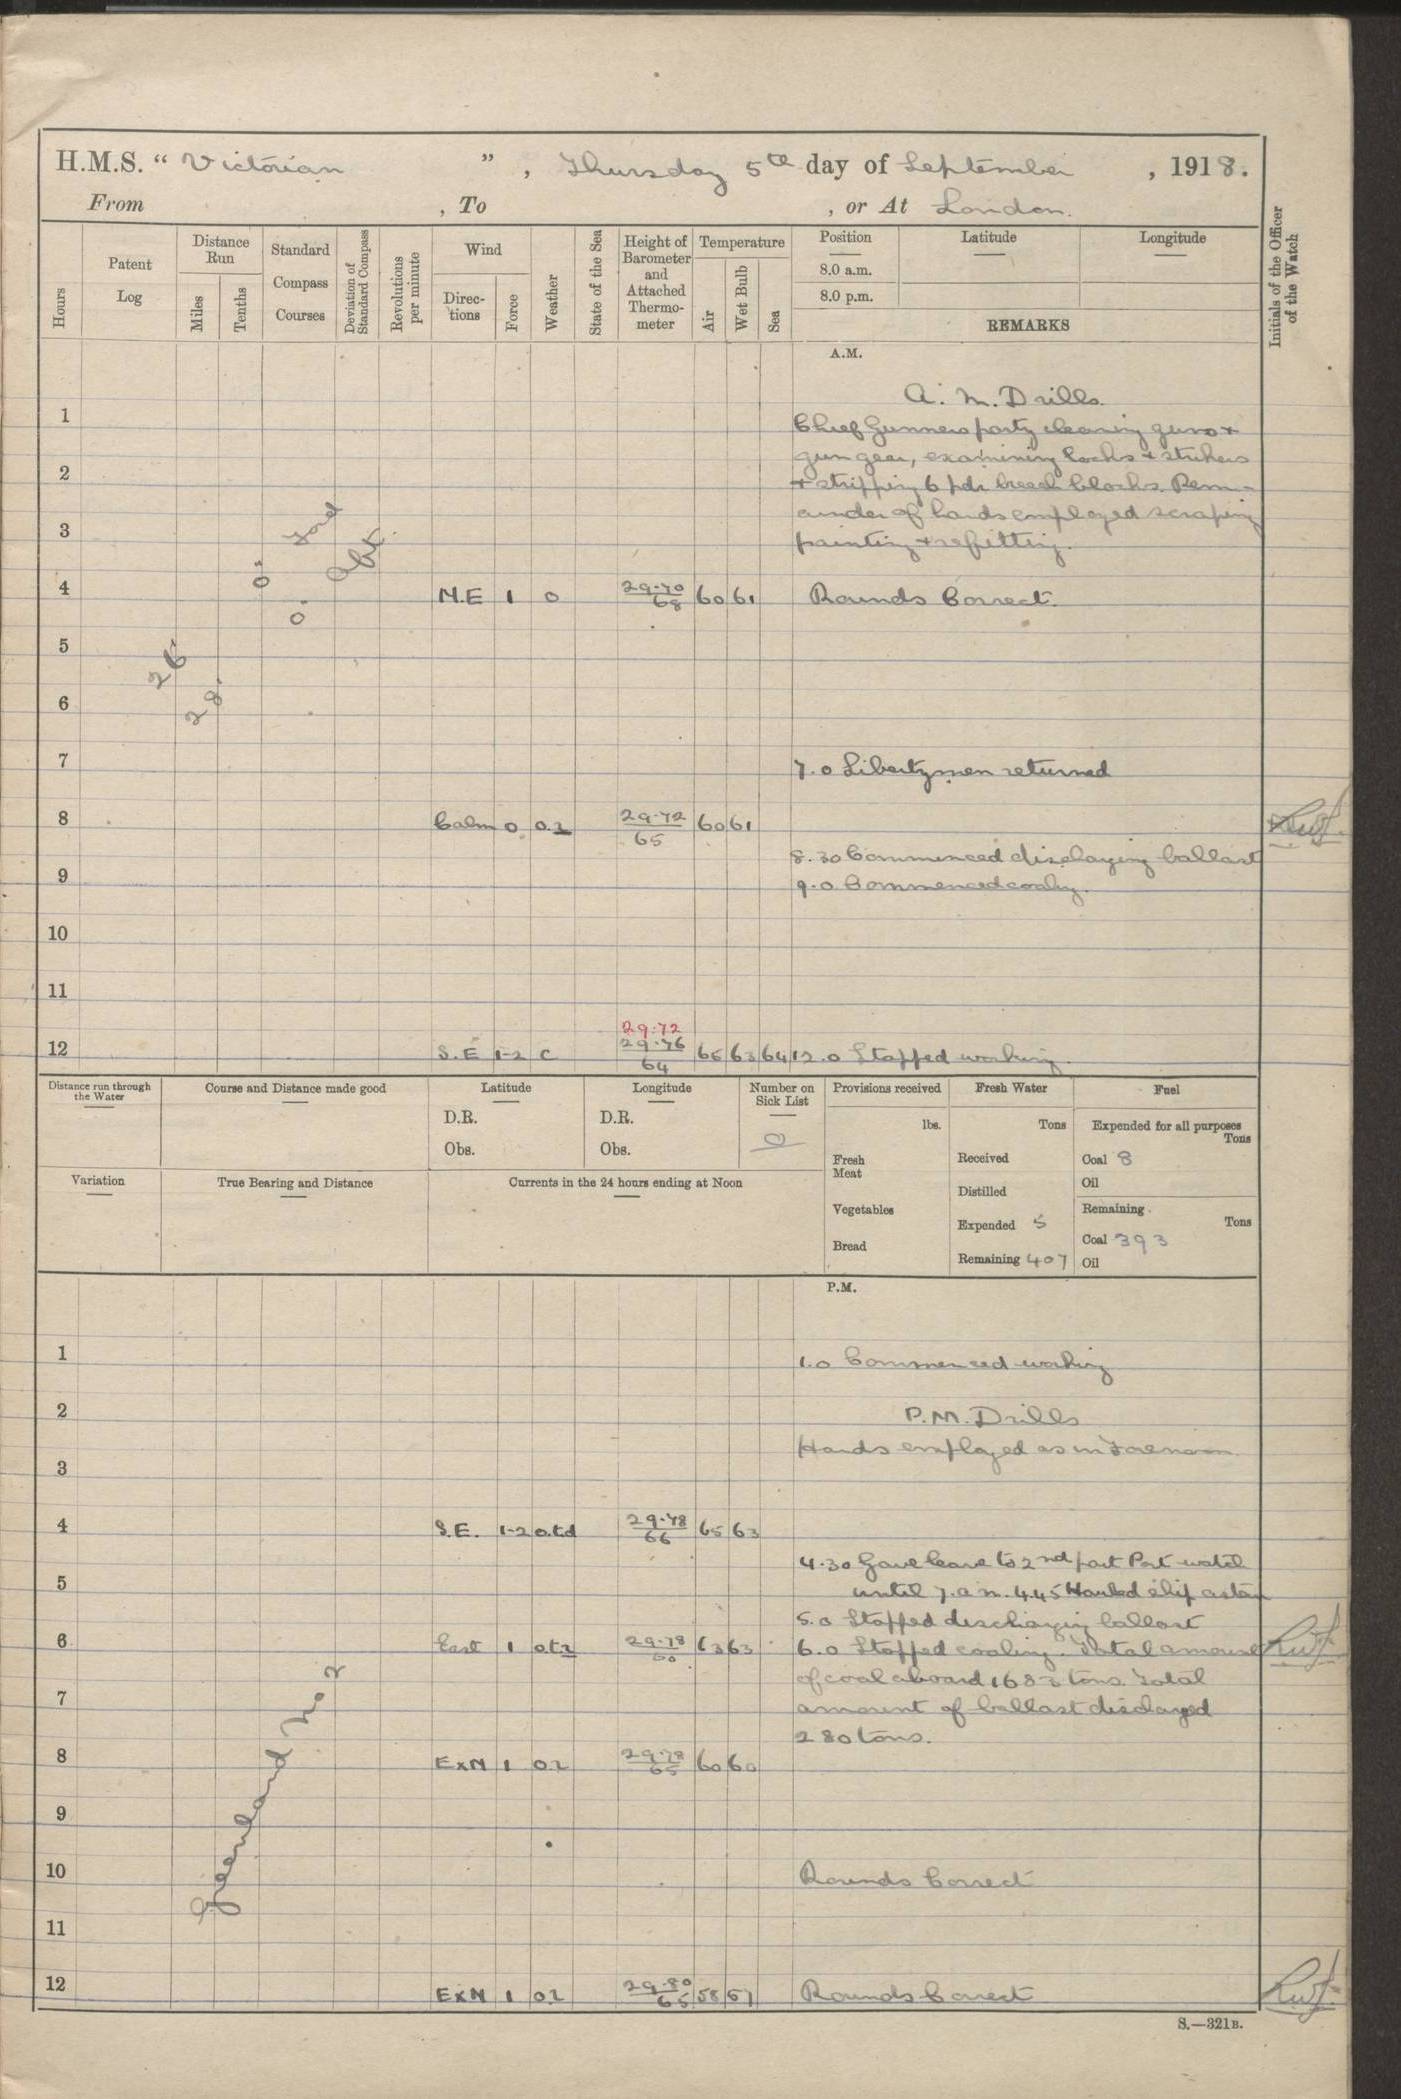 H.M.S. “ Victorian ” , Thursday 5th day of September , 1918.
From , To , or At London.
Hours
Patent Log
Distance Run
Miles
Tenths
Standard Compass Courses
Deviation of Standard Compass
Revolutions per minute
Wind
Direc-tions
Force
Weather
State of the Sea
Height of Barometer and Attached Thermo-meter
Temperature
Air
Wet Bulb
Sea
Position
8.0 a.m.
8.0 p.m.
Latitude
Longitude
REMARKS
Initials of the Officer of the Watch
A.M.
A. M. Drills.
1
Chief Gunners party cleaning guns +
gun gear, examining locks + strikers
2
+ stripping 6 pdr breech blocks. Rem-
ainder of hands employed scraping
3
painting + refitting.
4 N.E 1 o 29.70 68 60 61 Rounds Correct.
5
26.
6
28.
7
7.0 Libertymen returned
8 Calm 0 o.z 29.72 65 60 61
8.30 Commenced discharging ballast
9
9.0 Commenced coaling.
10
11
29.72
12 S.E 1-2 c 29.76 64 65 63 64 12.0 Stopped working.
Distance run through the Water
Course and Distance made good
Latitude
D.R.
Obs.
Longitude
D.R.
Obs.
Number on Sick List
0
Provisions received
lbs.
Fresh Meat
Vegetables
Bread
Fresh Water
Tons
Received
Distilled
Expended 5
Remaining 407
Fuel
Expended for all purposes
Tons
Coal 8
Oil
Remaining
Tons
Coal 393
Oil
Variation
True Bearing and Distance
Currents in the 24 hours ending at Noon
P.M.
1
1.0 Commenced working
2
P.M. Drills
Hands employed as in Forenoon
3
4 S.E. 1-2 o.t.d 29.78 66 65 63
4.30 Gave leave to 2nd part Port watch
5
until 7. a m. 4.45 Hauled ship astern
5.0 Stopped discharging ballast
6 East 1 o.t.z 29.78 63 63 6.0 Stopped coaling. Total amount
of coal aboard 1683 tons. Total
7
amount of ballast discharged
280 tons.
8 ExN 1 o.z 29.78 65 60 60
9
10
Rounds Correct
11
12 ExN 1 o.z 29.80 65 58 57 Rounds Correct
Greenland No 2
S.—321B.